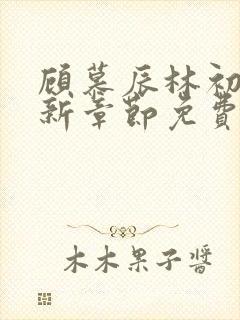 顾慕辰林初
新章节免费
木木果子酱